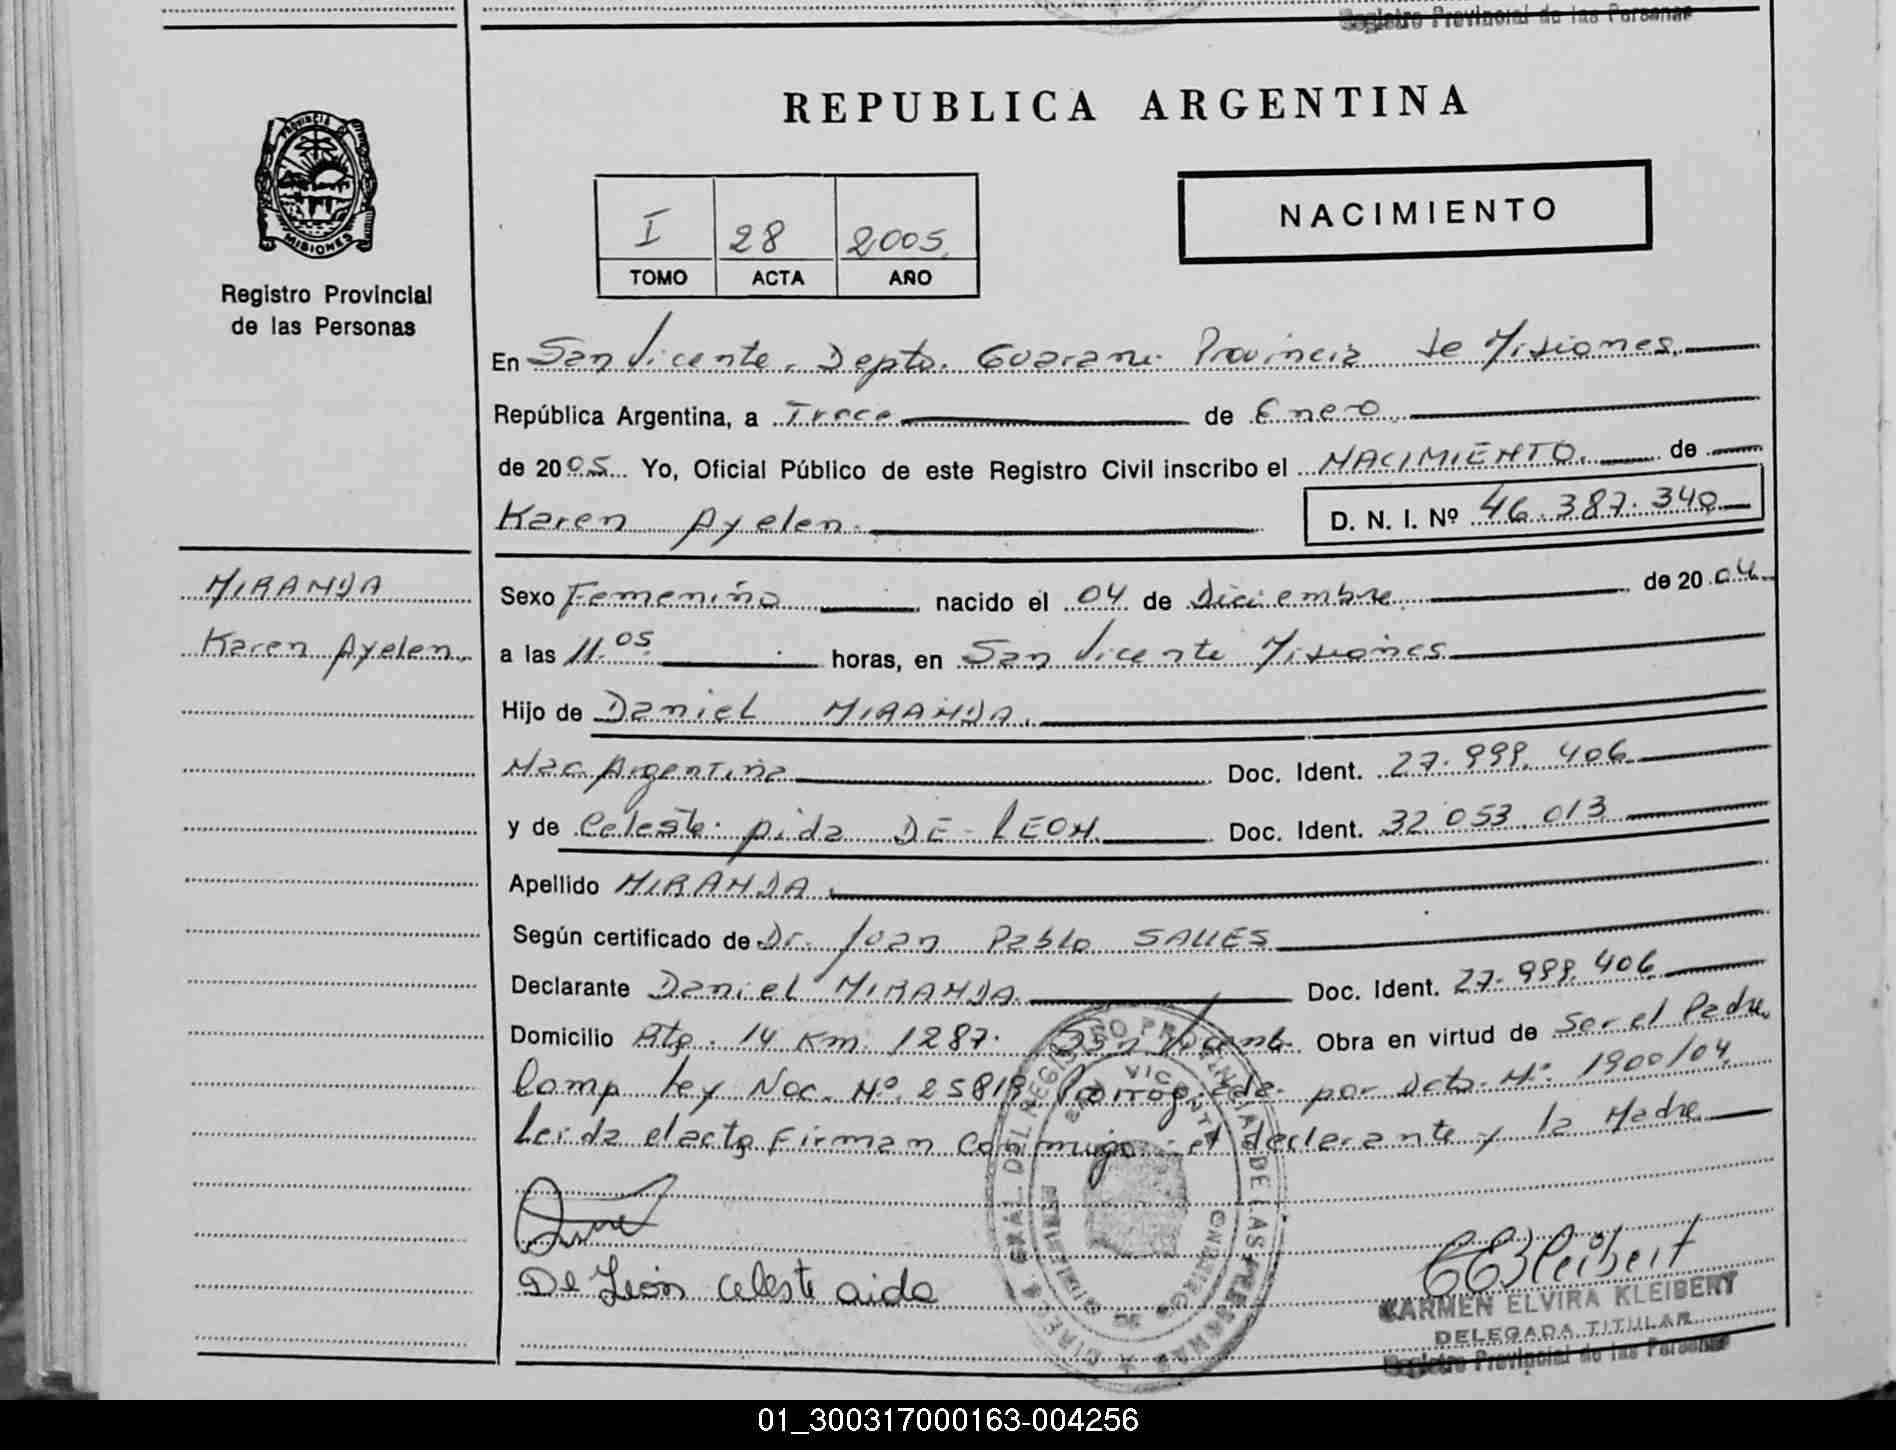 Registro Provincial de las Personas
PROVINCIA DE
MISIONES
Registro Provincial
de las Personas
REPUBLICA ARGENTINA
I 28 2005
TOMO ACTA AÑO
NACIMIENTO
En San Vicente. Depto. Guarani. Provincia de Misiones.
República Argentina, a Trece de Enero
de 2005 Yo, Oficial Público de este Registro Civil inscribo el NACIMIENTO. de
Karen Ayelen. D. N. I. Nº 46.387.340
MIRANDA
Karen Ayelen.
Sexo Femenino nacido el 04 de Diciembre de 2004
a las 11.05 horas, en San Vicente Misiones
Hijo de Daniel MIRANDA.
Nac Argentina Doc. Ident. 27.999.406
y de Celeste Aida DE LEON Doc. Ident. 32.053.013
Apellido MIRANDA.
Según certificado de Dr. Juan Pablo SALLES
Declarante Daniel MIRANDA Doc. Ident. 27.999.406
Domicilio Rta. 14 Km. 1287. San Vicente. Obra en virtud de Ser el Padre.
Comp Ley Nac. Nº. 25819 por Dcto. Nº. 1900/04
Leida el acta Firman Conmigo: el declarante y la Madre
De León celeste aida
CEKleibert
CARMEN ELVIRA KLEIBERT
DELEGADA TITULAR
Registro Provincial de las Personas
01_300317000163-004256